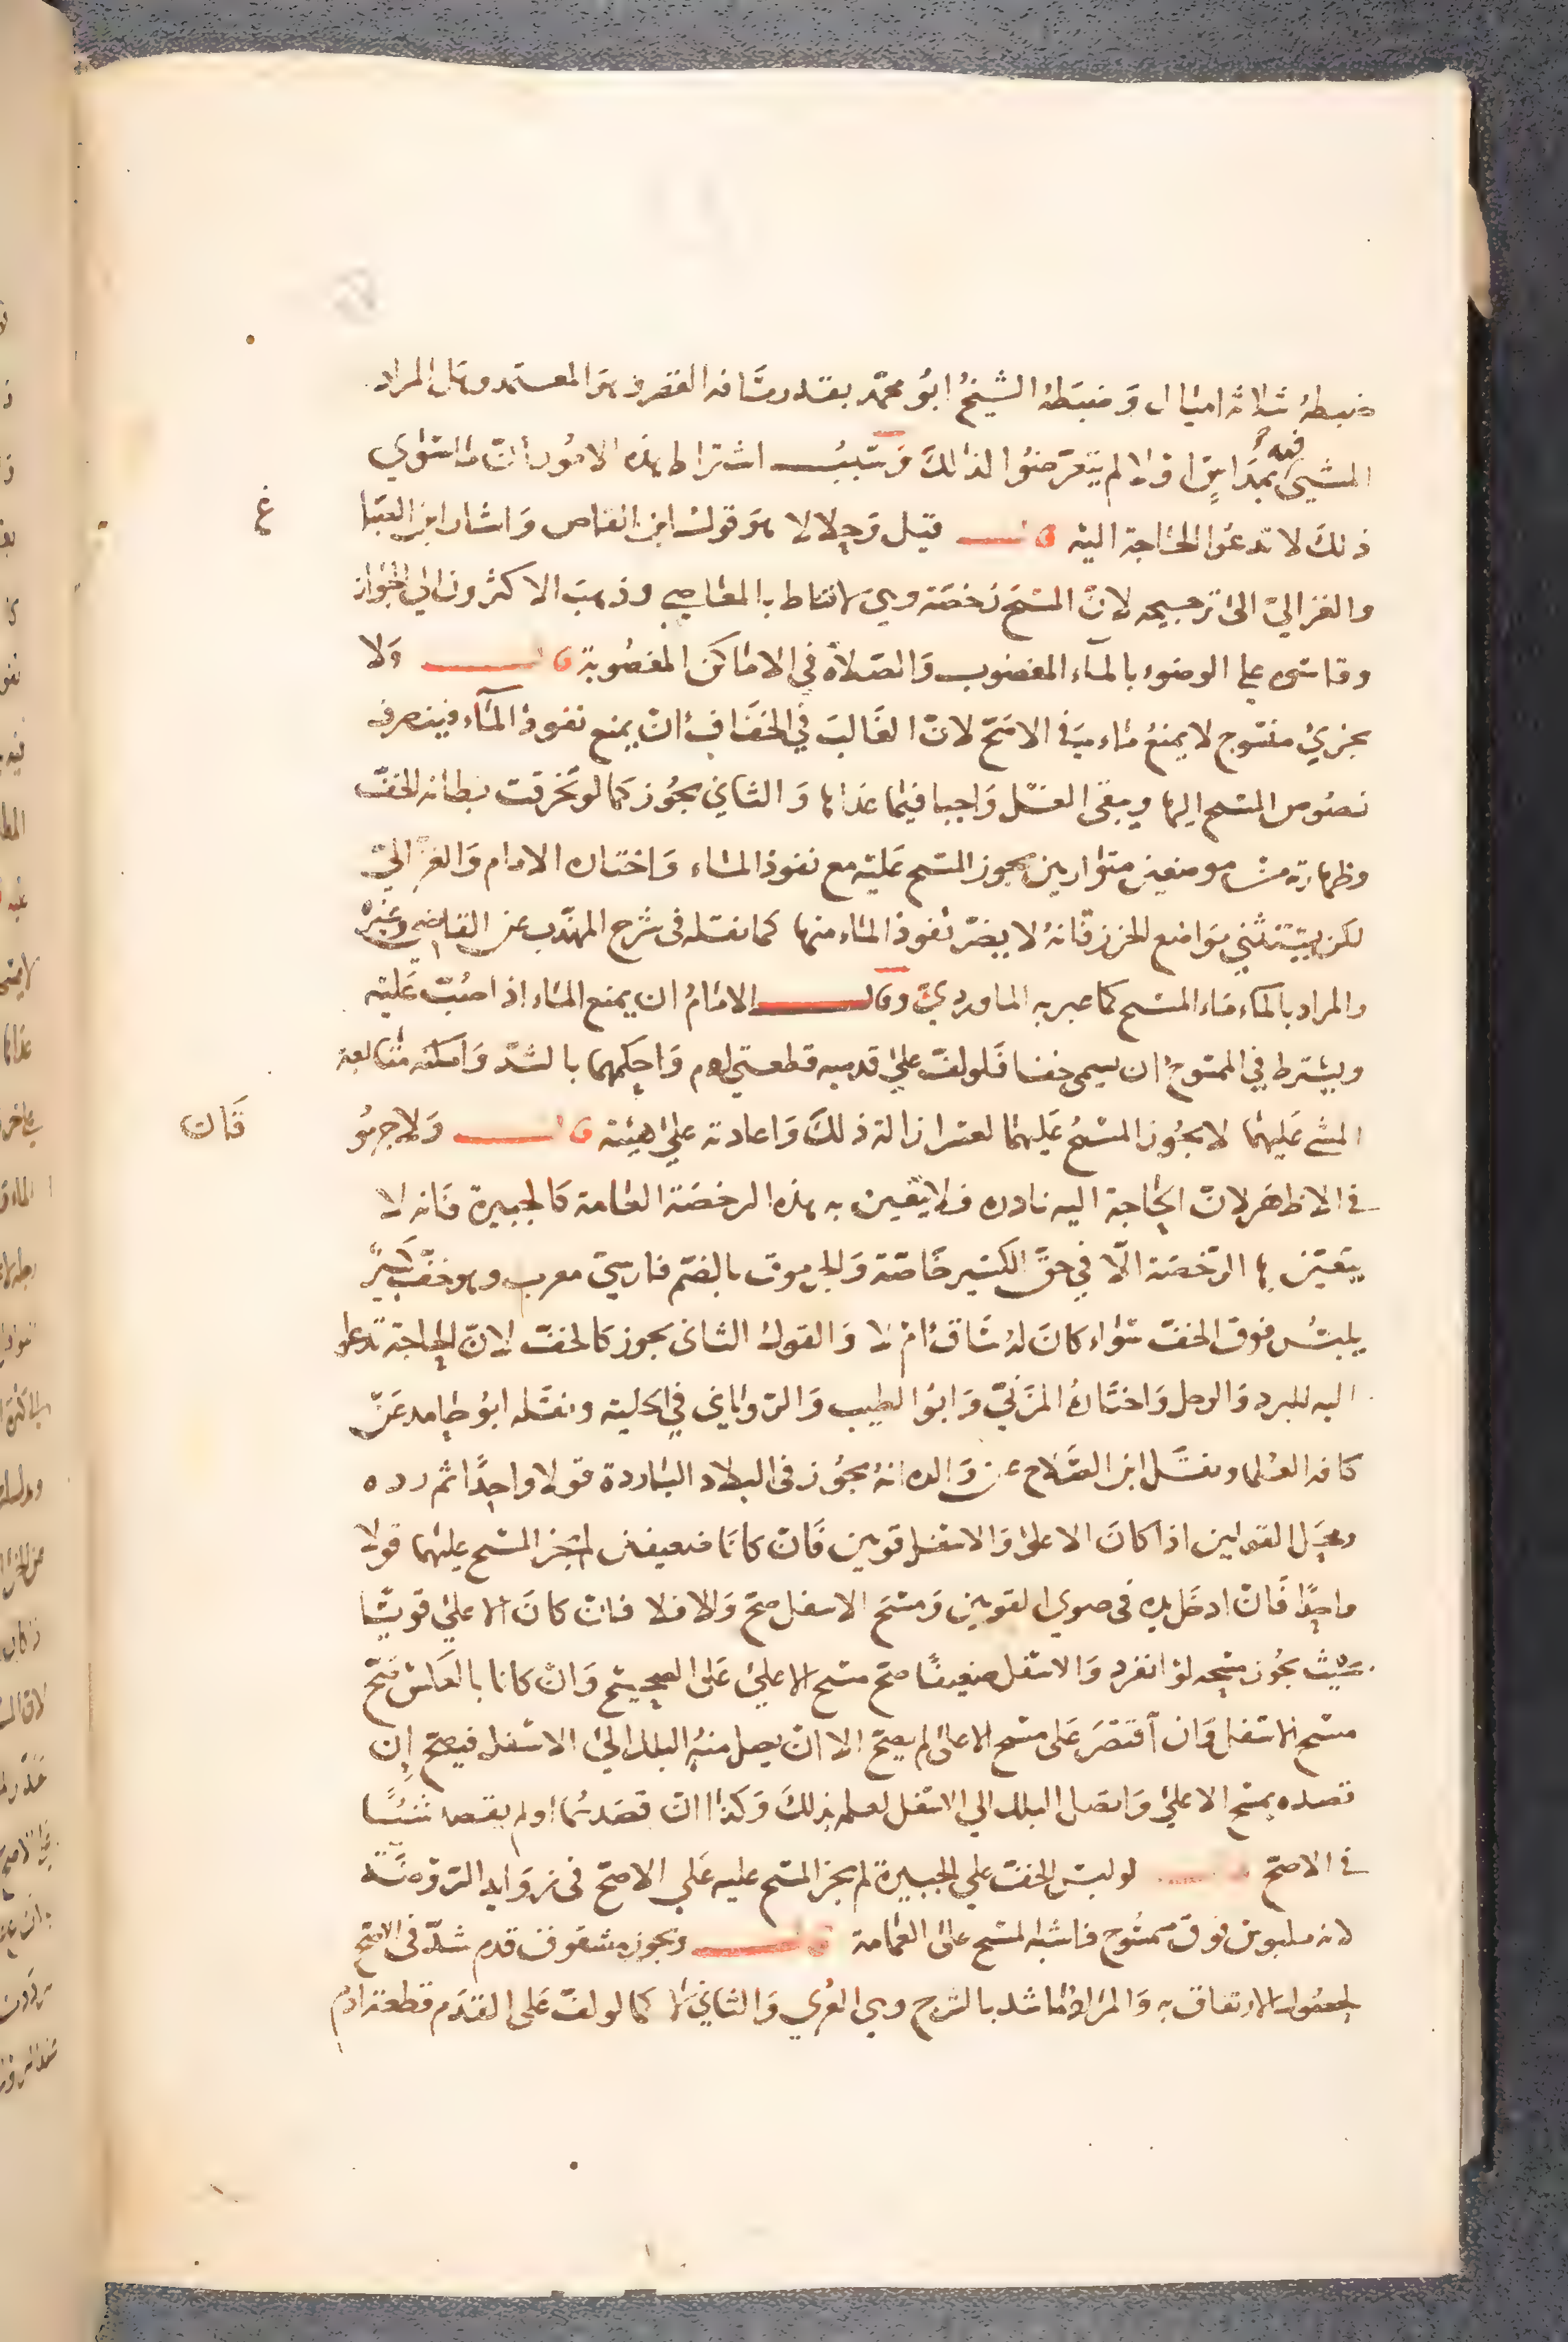 ضبطه ثلاثة اميال وَضبَطهُ الشيخُ ابوُ محمّد بقدر مسَافه القصر وهوَ المعتمد وهل المراد
المشي فيه بمدَاسٍ اولا لم يتعرّضوُا لذلكَ وَسَبَبُ اشتراط هذه الامُور انّ ما سوي
ذلكَ لا تدعُوا الحاجة اليه قال قيل وَحلالا هوَ قول ابن القاص وَاشار ابن الصبا
غ
والغزاليّ الى ترجيحه لانّ المسْحَ رُخصَة وهي لا تناط بالمعاصي وذهبَ الاكثرون الى الجواز
وقاسوه على الوضوء بالماء المغصوب وَالصّلاة في الاماكن المغصُوبة قال وَلا
يجزئ منسوج لا يمنعُ ماء في الاصَحّ لانّ الغَالبَ في الخفَاف انْ يمنع نفوذ الماء فينصرف
نصُوص المسح اليها ويبقى الغسْل وَاجبا فيما عَداها وَالثاني يجُوز كما لو تخرقت بطانة الخفّ
وظهارته من موضعين متوازيين يجوز المسح عَليه مع نفوذ الماء وَاختاره الامام وَالغزاليّ
لكن يسْتثني مَوَاضع الخرز فَانهُ لا يضرّ نفوذ الماء منها كما نقله في شرح المهذّب عن القاضي وَغيره
والمراد بالماء ماء المسْح كما عبر به الماورديّ وقال الامَامُ ان يمنع الماء اذا صُبّ عَليه
ويشترط في الممسوح ان يسمى خفا فَلو لفّ على قدميه قطعتي ادم وَاحكمهما بالشدّ وَامكنه متابعة
المشي عَليهما لا يجُوز المسْحُ عَليهما لعسر ازالة ذلكَ وَاعادته على هيئته قال وَلا جرمُو
قَان
في الاظهَر لانّ الحَاجة اليه نادره فلا يتعين به هذه الرخصَة العامة كَالجبيرة فَانه لا
يتعيّن بها الرّخصَة الّا في حقّ الكسير خَاصّة وَالجرموق بالضمّ فارسيّ معرب وهو خفّ كَبيرٌ
يلبسُ فوق الخفّ سَوَاء كانَ لهُ سَاقٌ امْ لا وَالقول الثاني يجوز كالخفّ لانّ الحاجة تدعوا
اليه للبرد وَالوحل وَاختارهُ المزَنيّ وَابوُا الطيب وَالرّوياني في الحلية ونقَله ابوُ حامد عَن
كافه العلما ونقَل ابن الصّلاح عن وَالده انهُ يجُوز في البلاد الباردة قولا واحدًا ثم رده
ومحَل القولين اذا كانَ الاعلى وَالاسفل قويين فَانْ كانا ضعيفين لم يجز المسح عليهما قولا
واحدًا فَانْ ادخَل يده في صورة القويين وَمسَح الاسفل صحّ وَالا فلا فانْ كانَ الاعلى قويًّا
بحيثُ يجُوز مسحه لو انفرد وَالاسفل ضعيفًا صحّ مسح الاعلى عَلى الصحيح وَانْ كانا بالعَكس صَحّ
مسْح الاسفل وَان اقتصَرَ عَلى مسْح الاعلى لم يصحّ الا انْ يصل منهُ البلل الى الاسفل فيصح إن
قصده بمسح الاعلى وَاتصَل البلل الى الاسفل لعلمه بذلكَ وَكذا ان قصَدهُما او لم يقصد شيئًا
في الاصحّ لو لبسَ الخفّ على الجبيرة لم يجز المسح عليه عَلي الاصحّ في زوَايد الرّوضَة
لانه ملبوس فوق ممسُوح فاشبَه المسْح على العمامة قال ويجوز مشقوق قدم شدّ في الاصحّ
لحصُول الارتفاق به وَالمراد ما شد بالشرج وهي العُري وَالثاني لا كما لو لفّ عَلى القدَم قطعة ادم